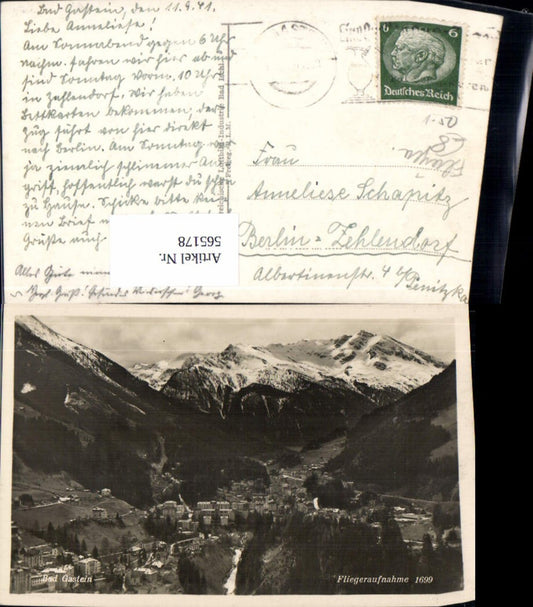 Bad Gastein, den 11.9.41.
Liebe Anneliese!
Am Sonnabend gegen 6 Uhr
nachm. fahren wir hier ab und
sind Sonntag Vorm. 10 Uhr
in Zehlendorf. Wir haben
Bettkarten bekommen, der
Zug fährt von hier direkt
nach Berlin. Am Sonntag war
ja ziemlich schlimmer An-
griff, hoffentlich warst du schon
zu Hause. Schicke bitte kei-
nen Brief
Grüße auch
Alles Gute
6 6
Deutsches Reich
1.50
Frau
Anneliese Schapitz
Berlin-Zehlendorf
Albertinenstr. 4 b/
Penitzka
Artikel Nr.
565178
Bad Gastein
Fliegeraufnahme 1699